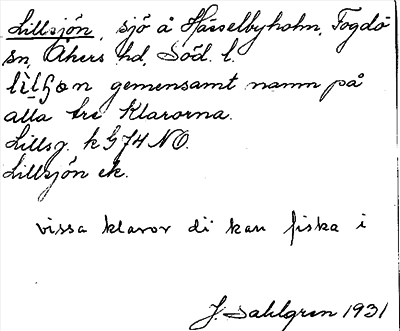 Lillsjön, sjö å Hässelbyholm, Fogdö
sn, Åkers hd, Söd. l.
gemensamt namn på
alla tre Klarorna.
Lillsg. k G 74 NO.
Lillsjön ek.
vissa klaror di kan fiska i
J. Sahlgren 1931